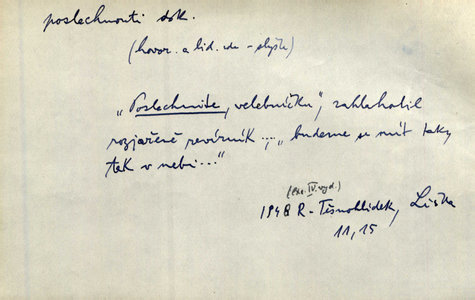 poslechnouti dok.
(hovor. a lid. vde - slyšte)
„Poslechněte, velebníčku“, zahlaholil
rozjařeně revírník ..., „budeme se mít taky
tak v nebi ...“
IV. vyd.)
1948 R. Těsnohlídek, Liška
11, 15